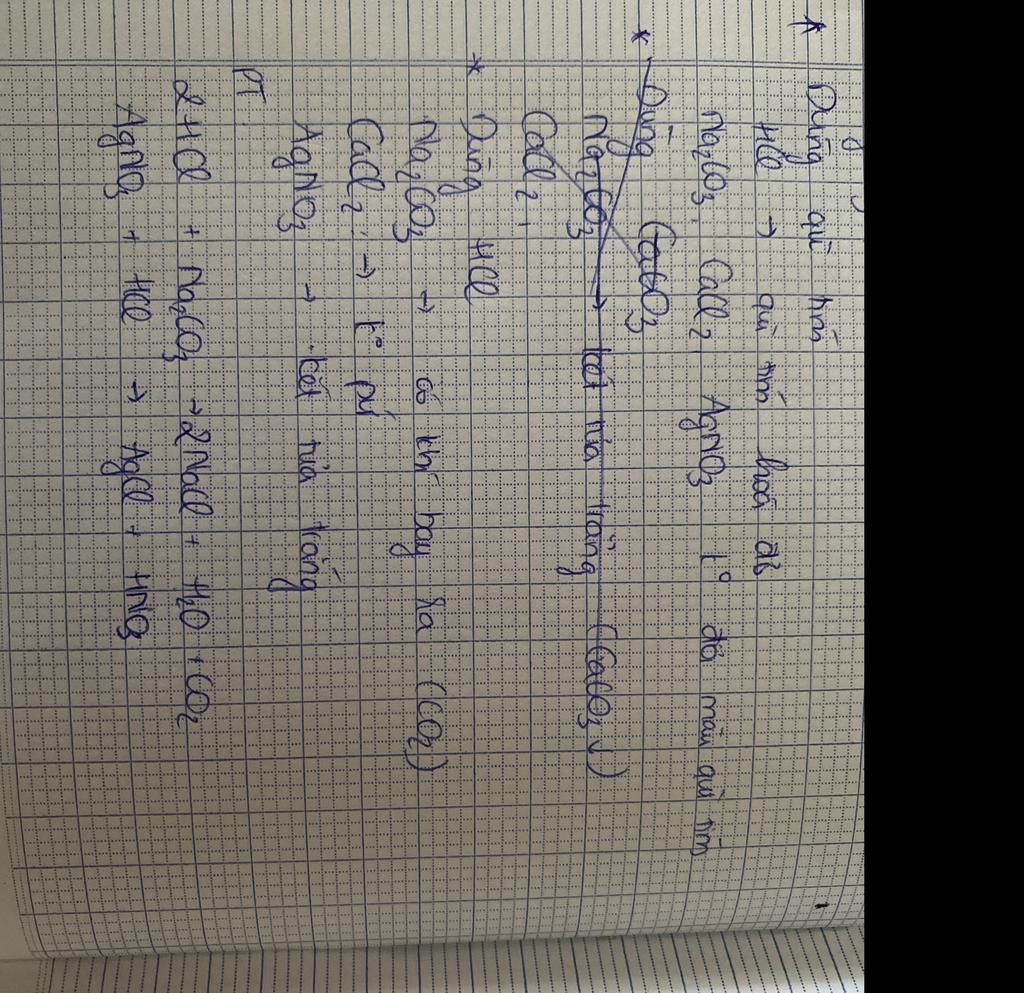 * Dùng quì tím
HCl → quì tím hoá đỏ
Na₂CO₃, CaCl₂, AgNO₃ k° đổi màu quì tím
* Dùng CaCO₃
Na₂CO₃ → kết tủa trắng (CaCO₃↓)
CaCl₂,
* Dùng HCl
Na₂CO₃ → có khí bay ra (CO₂)
CaCl₂: → k° pứ
AgNO₃ → kết tủa trắng
PT:
2HCl + Na₂CO₃ → 2NaCl + H₂O + CO₂
AgNO₃ + HCl → AgCl + HNO₃